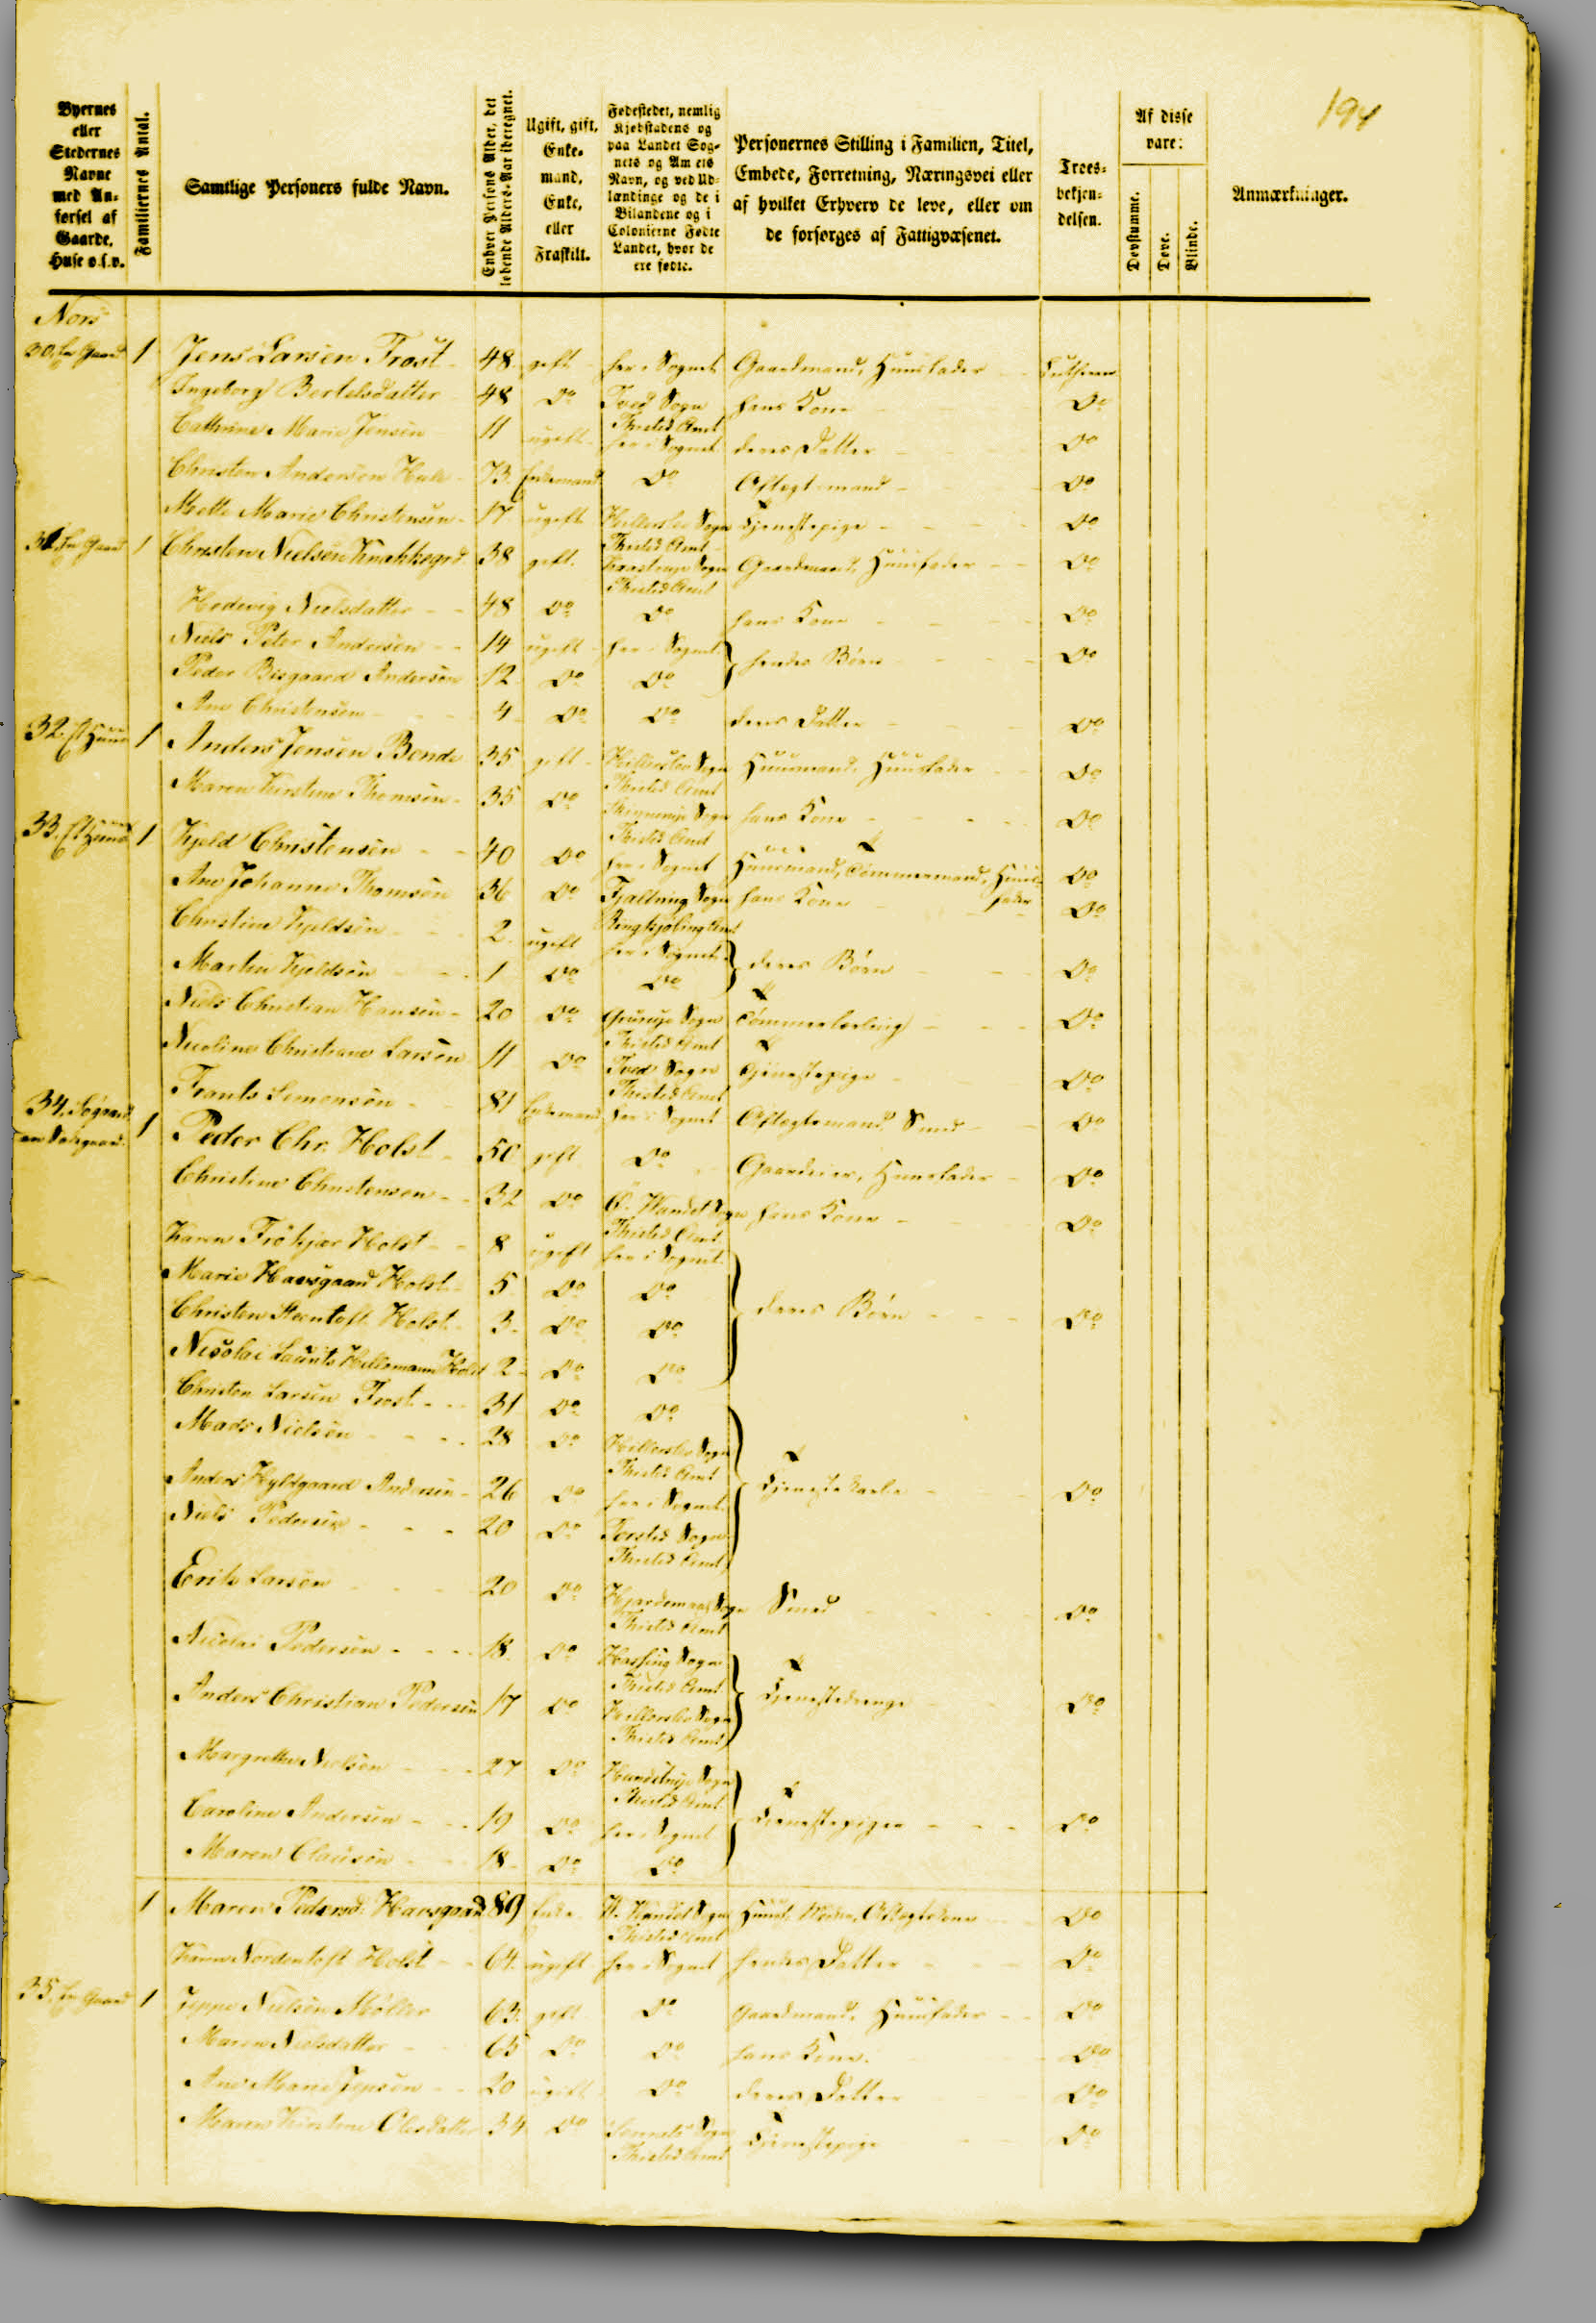 194
Byernes eller Stedernes Navne med Anførsel af Gaarde, Huse o.s.v.
Familiernes Antal.
Samtlige Personers fulde Navn.
Enhver Persons Alder, det løbende Alders-Aar iberegnet.
Ugift, gift, Enkemand, Enke, eller Fraskilt.
Fødestedet, nemlig Kjøbstadens og paa Landet Sognets og Amtets Navn, og ved Udlændinge og de i Bilandene og i Colonierne Fødte Landet, hvor de ere fødte.
Personernes Stilling i Familien, Titel, Embede, Forretning, Næringsvei eller af hvilket Erhverv de leve, eller om de forsørges af Fattigvæsenet.
Troesbekjendelsen.
Af disse vare:
Døvstumme.
Døve.
Blinde.
Anmærkninger.
Nors
30. En Gaard 1 Jens Larsen Frost 48 gift her i Sognet Gaardmand, Huusfader Luthersk
Ingeborg Bertelsdatter 48 Do Tved Sogn Thisted Amt hans Kone Do
Cathrine Marie Jensen 11 ugift her i Sognet deres Datter Do
Christen Andersen 73 Enkemand Do Aftægtsmand Do
Mette Marie Christensen 17 ugift Hillerslev Sogn Thisted Amt Tjenestepige Do
31. En Gaard 1 Christen Nielsen 38 gift Sogn Thisted Amt Gaardmand, Huusfader Do
Hedevig Nielsdatter 48 Do Do hans Kone Do
Niels Peter Andersen 14 ugift her i Sognet } hendes Børn Do
Peder Bisgaard Andersen 12 Do Do
Ane Christensen 4 Do Do deres Datter Do
32. Et Huus 1 Anders Jensen Bonde 35 gift Hillerslev Sogn Thisted Amt Huusmand, Huusfader Do
Maren Kirstine Thomsen 35 Do Sogn Thisted Amt hans Kone Do
33. Et Huus 1 Kjeld Christensen 40 Do her i Sognet Huusmand, Tømmermand, Huusfader Do
Ane Johanne Thomsen 36 Do Fjaltring Sogn Ringkjøbing Amt hans Kone Do
Christine Kjeldsen 2 ugift her i Sognet } deres Børn Do
Martin Kjeldsen 1 Do Do
Niels Christian Hansen 20 Do Sogn Thisted Amt Tømmerlærling Do
Nicoline Christiane Larsen 11 Do Tved Sogn Thisted Amt Tjenestepige Do
Frants Simonsen 81 Enkemand her i Sognet Aftægtsmand Smed Do
34. Søgaard en 1 Peder Chr. Holst 50 gift Do Gaardeier, Huusfader Do
Christine Christensen 32 Do Ø. Wandet Sogn Thisted Amt hans Kone Do
Karen Frökjær Holst 8 ugift her i Sognet } deres Børn Do
Marie Havsgaard Holst 5 Do Do
Christen Steentoft Holst 3 Do Do
Nicolai Holst 2 Do Do
Christen Larsen Frost 31 Do Do } Tjenestekarle Do
Mads Nielsen 28 Do Hillerslev Sogn Thisted Amt
Anders Hyldgaard Andersen 26 Do her i Sognet
Niels Pedersen 20 Do Torsted Sogn Thisted Amt
Erik Larsen 20 Do Hjardemaal Sogn Thisted Amt Smed Do
Nicolai Pedersen 18 Do Hassing Sogn Thisted Amt } Tjenestedrenge Do
Anders Christian Pedersen 17 Do Hillerslev Sogn Thisted Amt
Margrethe Nielsen 27 Do Hundstrup Sogn Thisted Amt } Tjenestepiger Do
Caroline Andersen 19 Do her i Sognet
Maren Clausen 18 Do Do
1 Maren Pedersd. Havsgaard 89 Enke V. Wandet Sogn Thisted Amt Huusf. Moder, Aftægtskone Do
Karen Nordentoft Holst 64 ugift her i Sognet hendes Datter Do
35. En Gaard 1 Jeppe Nielsen Møller 63 gift Do Gaardmand, Huusfader Do
Maren Nielsdatter 65 Do Do hans Kone. Do
Ane Marie Jepsen 20 ugift Do deres Datter Do
Maren Kirstine Olesdatter 34 Do Sennels Sogn Thisted Amt Tjenestepige Do